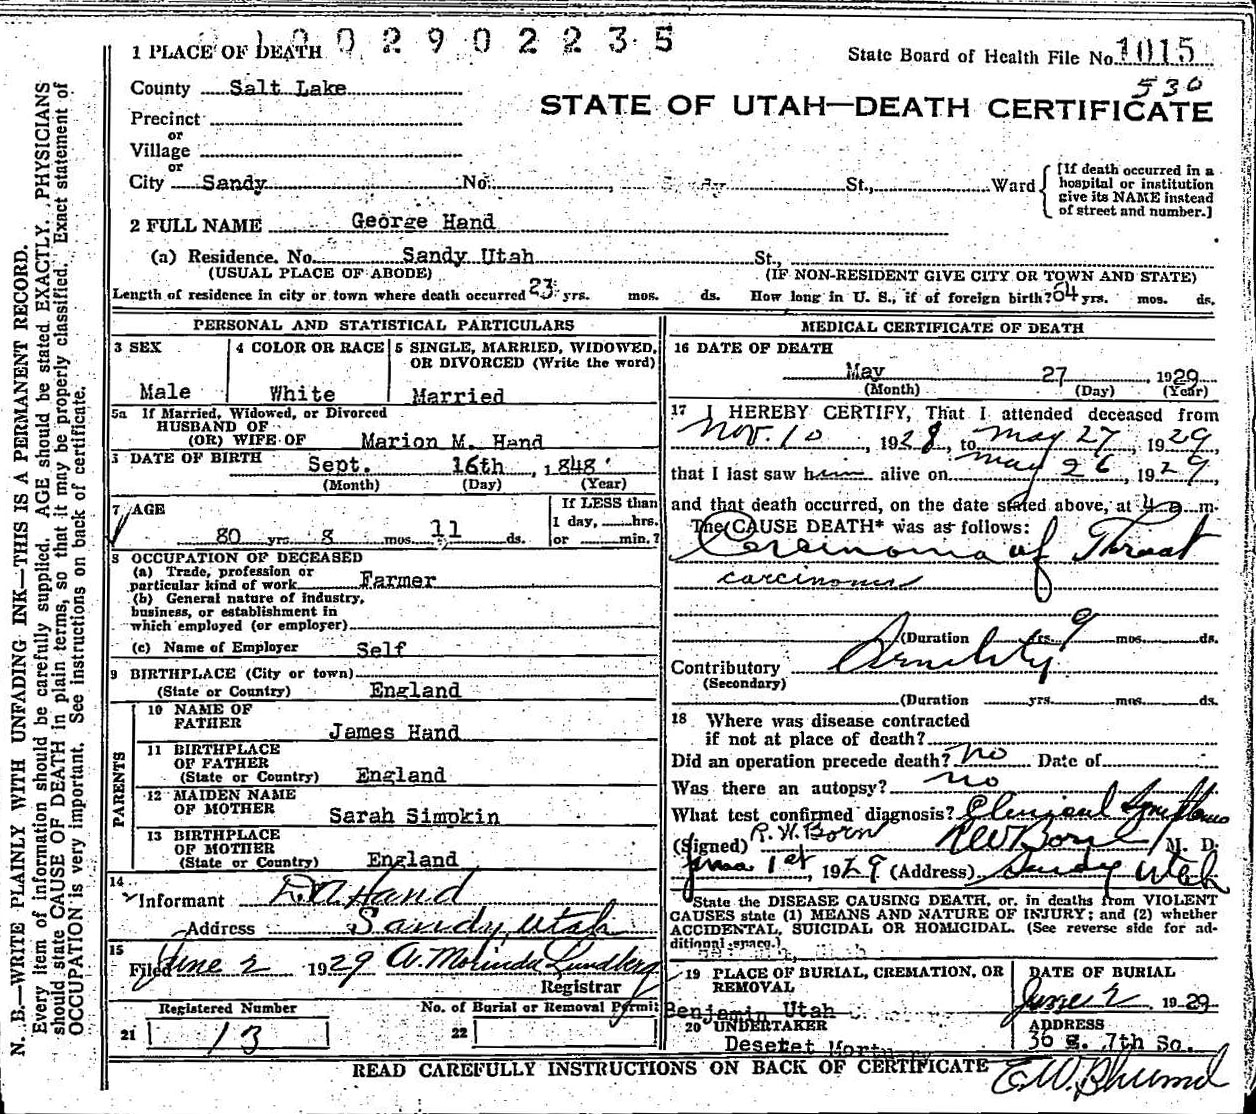 1 PLACE OF DEATH 1002902235
State Board of Health File No. 1015
530
County Salt Lake
STATE OF UTAH—DEATH CERTIFICATE
Precinct
or
Village
or
City Sandy No. , Sandy St., Ward
[If death occurred in a
hospital or institution
give its NAME instead
of street and number.]
2 FULL NAME George Hand
(a) Residence. No. Sandy Utah St.,
(USUAL PLACE OF ABODE) (IF NON-RESIDENT GIVE CITY OR TOWN AND STATE)
Length of residence in city or town where death occurred 23 yrs. mos. ds. How long in U. S., if of foreign birth? 64 yrs. mos. ds.
PERSONAL AND STATISTICAL PARTICULARS
3 SEX 4 COLOR OR RACE 5 SINGLE, MARRIED, WIDOWED,
OR DIVORCED (Write the word)
Male White Married
5a If Married, Widowed, or Divorced
HUSBAND OF
(OR) WIFE OF Marion M. Hand
DATE OF BIRTH Sept. 16th , 1848
(Month) (Day) (Year)
7 AGE If LESS than
1 day, hrs.
80 yrs. 8 mos. 11 ds. or min.?
8 OCCUPATION OF DECEASED
(a) Trade, profession or
particular kind of work Farmer
(b) General nature of industry,
business, or establishment in
which employed (or employer)
(c) Name of Employer Self
9 BIRTHPLACE (City or town)
(State or Country) England
PARENTS
10 NAME OF
FATHER James Hand
11 BIRTHPLACE
OF FATHER
(State or Country) England
12 MAIDEN NAME
OF MOTHER Sarah Simpkin
13 BIRTHPLACE
OF MOTHER
(State or Country) England
14
Informant Hand
Address Sandy, Utah
15
Filed June 2 1929 A. Morinda Lundberg
Registrar
Registered Number No. of Burial or Removal Permit
21 13 22
MEDICAL CERTIFICATE OF DEATH
16 DATE OF DEATH
May 27 , 1929
(Month) (Day) (Year)
17 I HEREBY CERTIFY, That I attended deceased from
Nov. 10 , 1928, to May 27, 1929
that I last saw him alive on May 26, 1929
and that death occurred, on the date stated above, at 4 a m.
The CAUSE DEATH* was as follows:
Carcinoma of Throat
carcinoma
(Duration yrs. 9 mos. ds.
Contributory Senility
(Secondary)
(Duration yrs. mos. ds.
18 Where was disease contracted
if not at place of death?
Did an operation precede death? no Date of
Was there an autopsy? no
What test confirmed diagnosis? Clinical Symptoms
(Signed) R. W. Born R W Born M. D.
June 1st, 1929 (Address) Sandy Utah
State the DISEASE CAUSING DEATH, or, in deaths from VIOLENT
CAUSES state (1) MEANS AND NATURE OF INJURY; and (2) whether
ACCIDENTAL, SUICIDAL OR HOMICIDAL. (See reverse side for ad-
ditional space.)
19 PLACE OF BURIAL, CREMATION, OR
REMOVAL
Benjamin Utah
DATE OF BURIAL
June 2 1929
20 UNDERTAKER
Deseret Morty
ADDRESS
36 E. 7th So.
READ CAREFULLY INSTRUCTIONS ON BACK OF CERTIFICATE
N. B.—WRITE PLAINLY WITH UNFADING INK—THIS IS A PERMANENT RECORD.
Every item of information should be carefully supplied. AGE should be stated EXACTLY. PHYSICIANS
should state CAUSE OF DEATH in plain terms, so that it may be properly classified. Exact statement of
OCCUPATION is very important. See instructions on back of certificate.